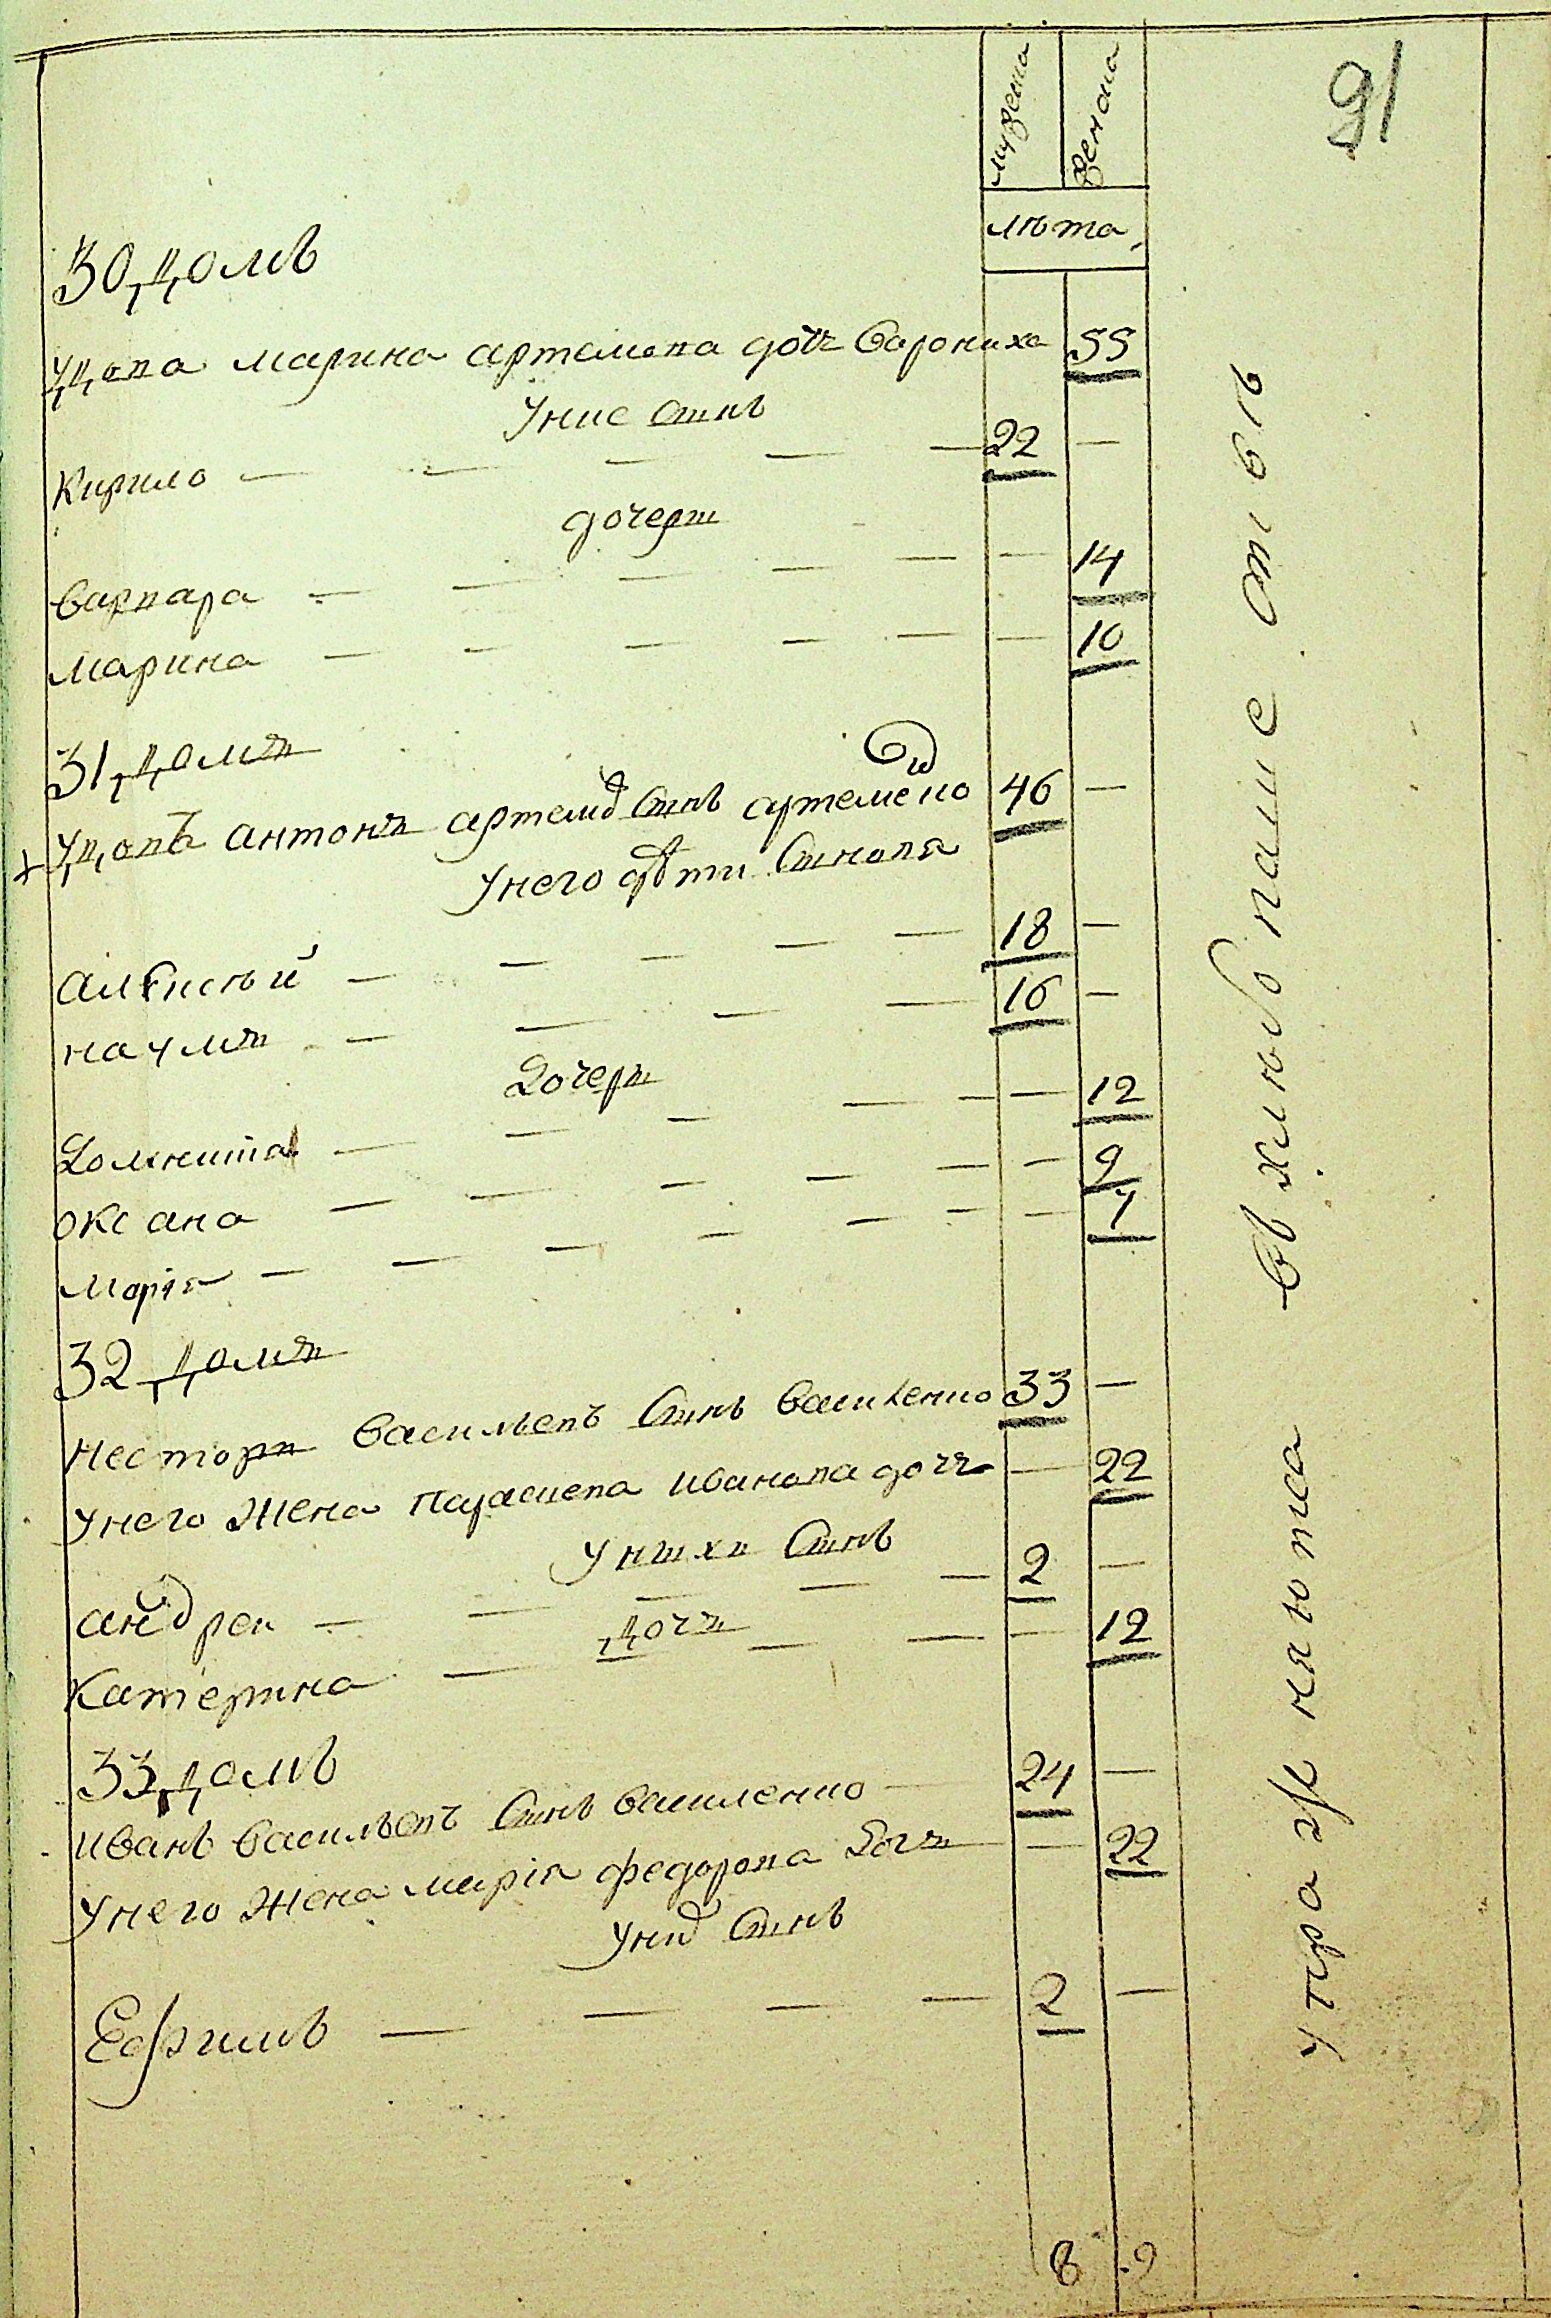 91
мужеска
женска
лѣта
30 домъ
удова марина артемова дочь Ворониха 55
уние Синъ
Кирило — — — — — 22 —
дочери
Варвара — — — — — — 14
марина — — — — — — 10
31 домъ
удовъ антонъ артемов Синъ артеменко 46 —
унего дѣти Синовя
алексѣй — — — — — 18 —
наумъ — — — — 16 —
дочери
домникія — — — — — — 12
оксана — — — — — — 9
марія — — — — — — — 7
32 домъ
несторъ Васильевъ Синъ Василенко 33 —
унего жена параскева иванова дочь — 22
унихъ Синъ
андреи — — — — — 2 —
дочъ
Катерина — — — — 12
33 домъ
иванъ Васильевъ Синъ василенко — 24 —
унего жена марія федорова дочъ — 22
Синъ
Ефимъ — — — — 2 —
8 9
упражняются въ хлѣбопашествѣ